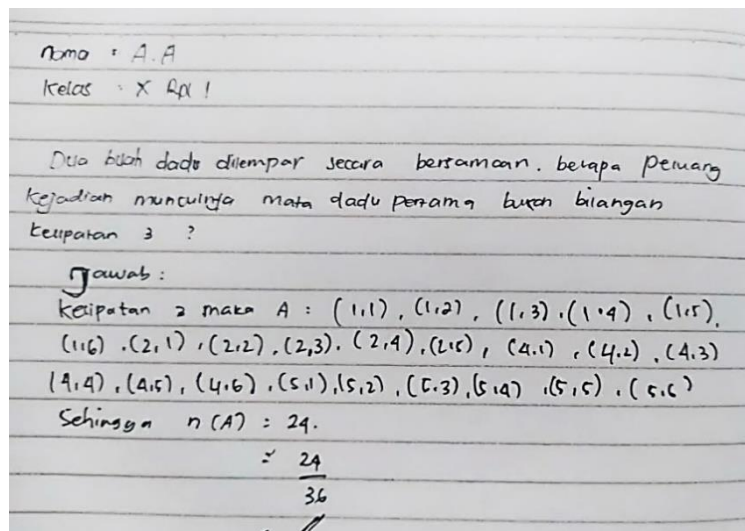 nama : A.A
Kelas : X RPL 1
Dua buah dadu dilempar secara bersamaan. berapa Peluang
Kejadian munculnya mata dadu pertama bukan bilangan
kelipatan 3 ?
Jawab :
kelipatan 2 maka A : (1,1), (1,2), (1,3), (1,4), (1,5),
(1,6), (2,1), (2,2), (2,3), (2,4), (2,5), (4,1), (4,2), (4,3)
(4,4), (4,5), (4,6), (5,1), (5,2), (5,3), (5,4), (5,5), (5,6)
Sehingga n(A) : 24.
= 24
36